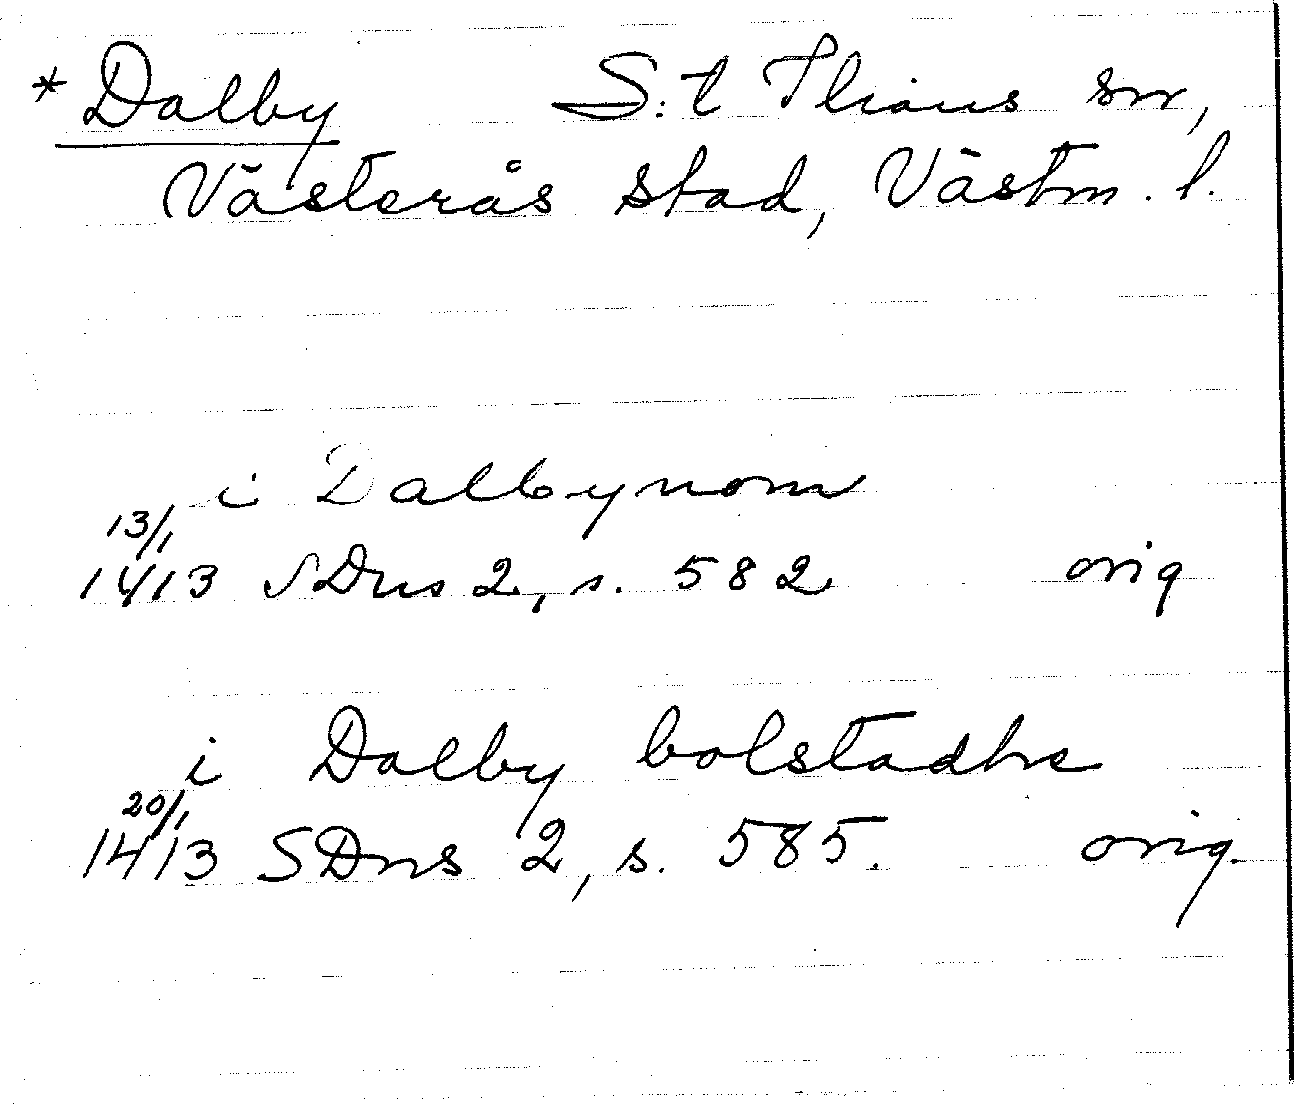 * Dalby S:t Ilians sn,
Västerås stad, Västm. l.
i Dalbynom
13/1
1413 SDns 2, s. 582 orig
i Dalby bolstadhe
20/1
1413 SDns 2, s. 585. orig.